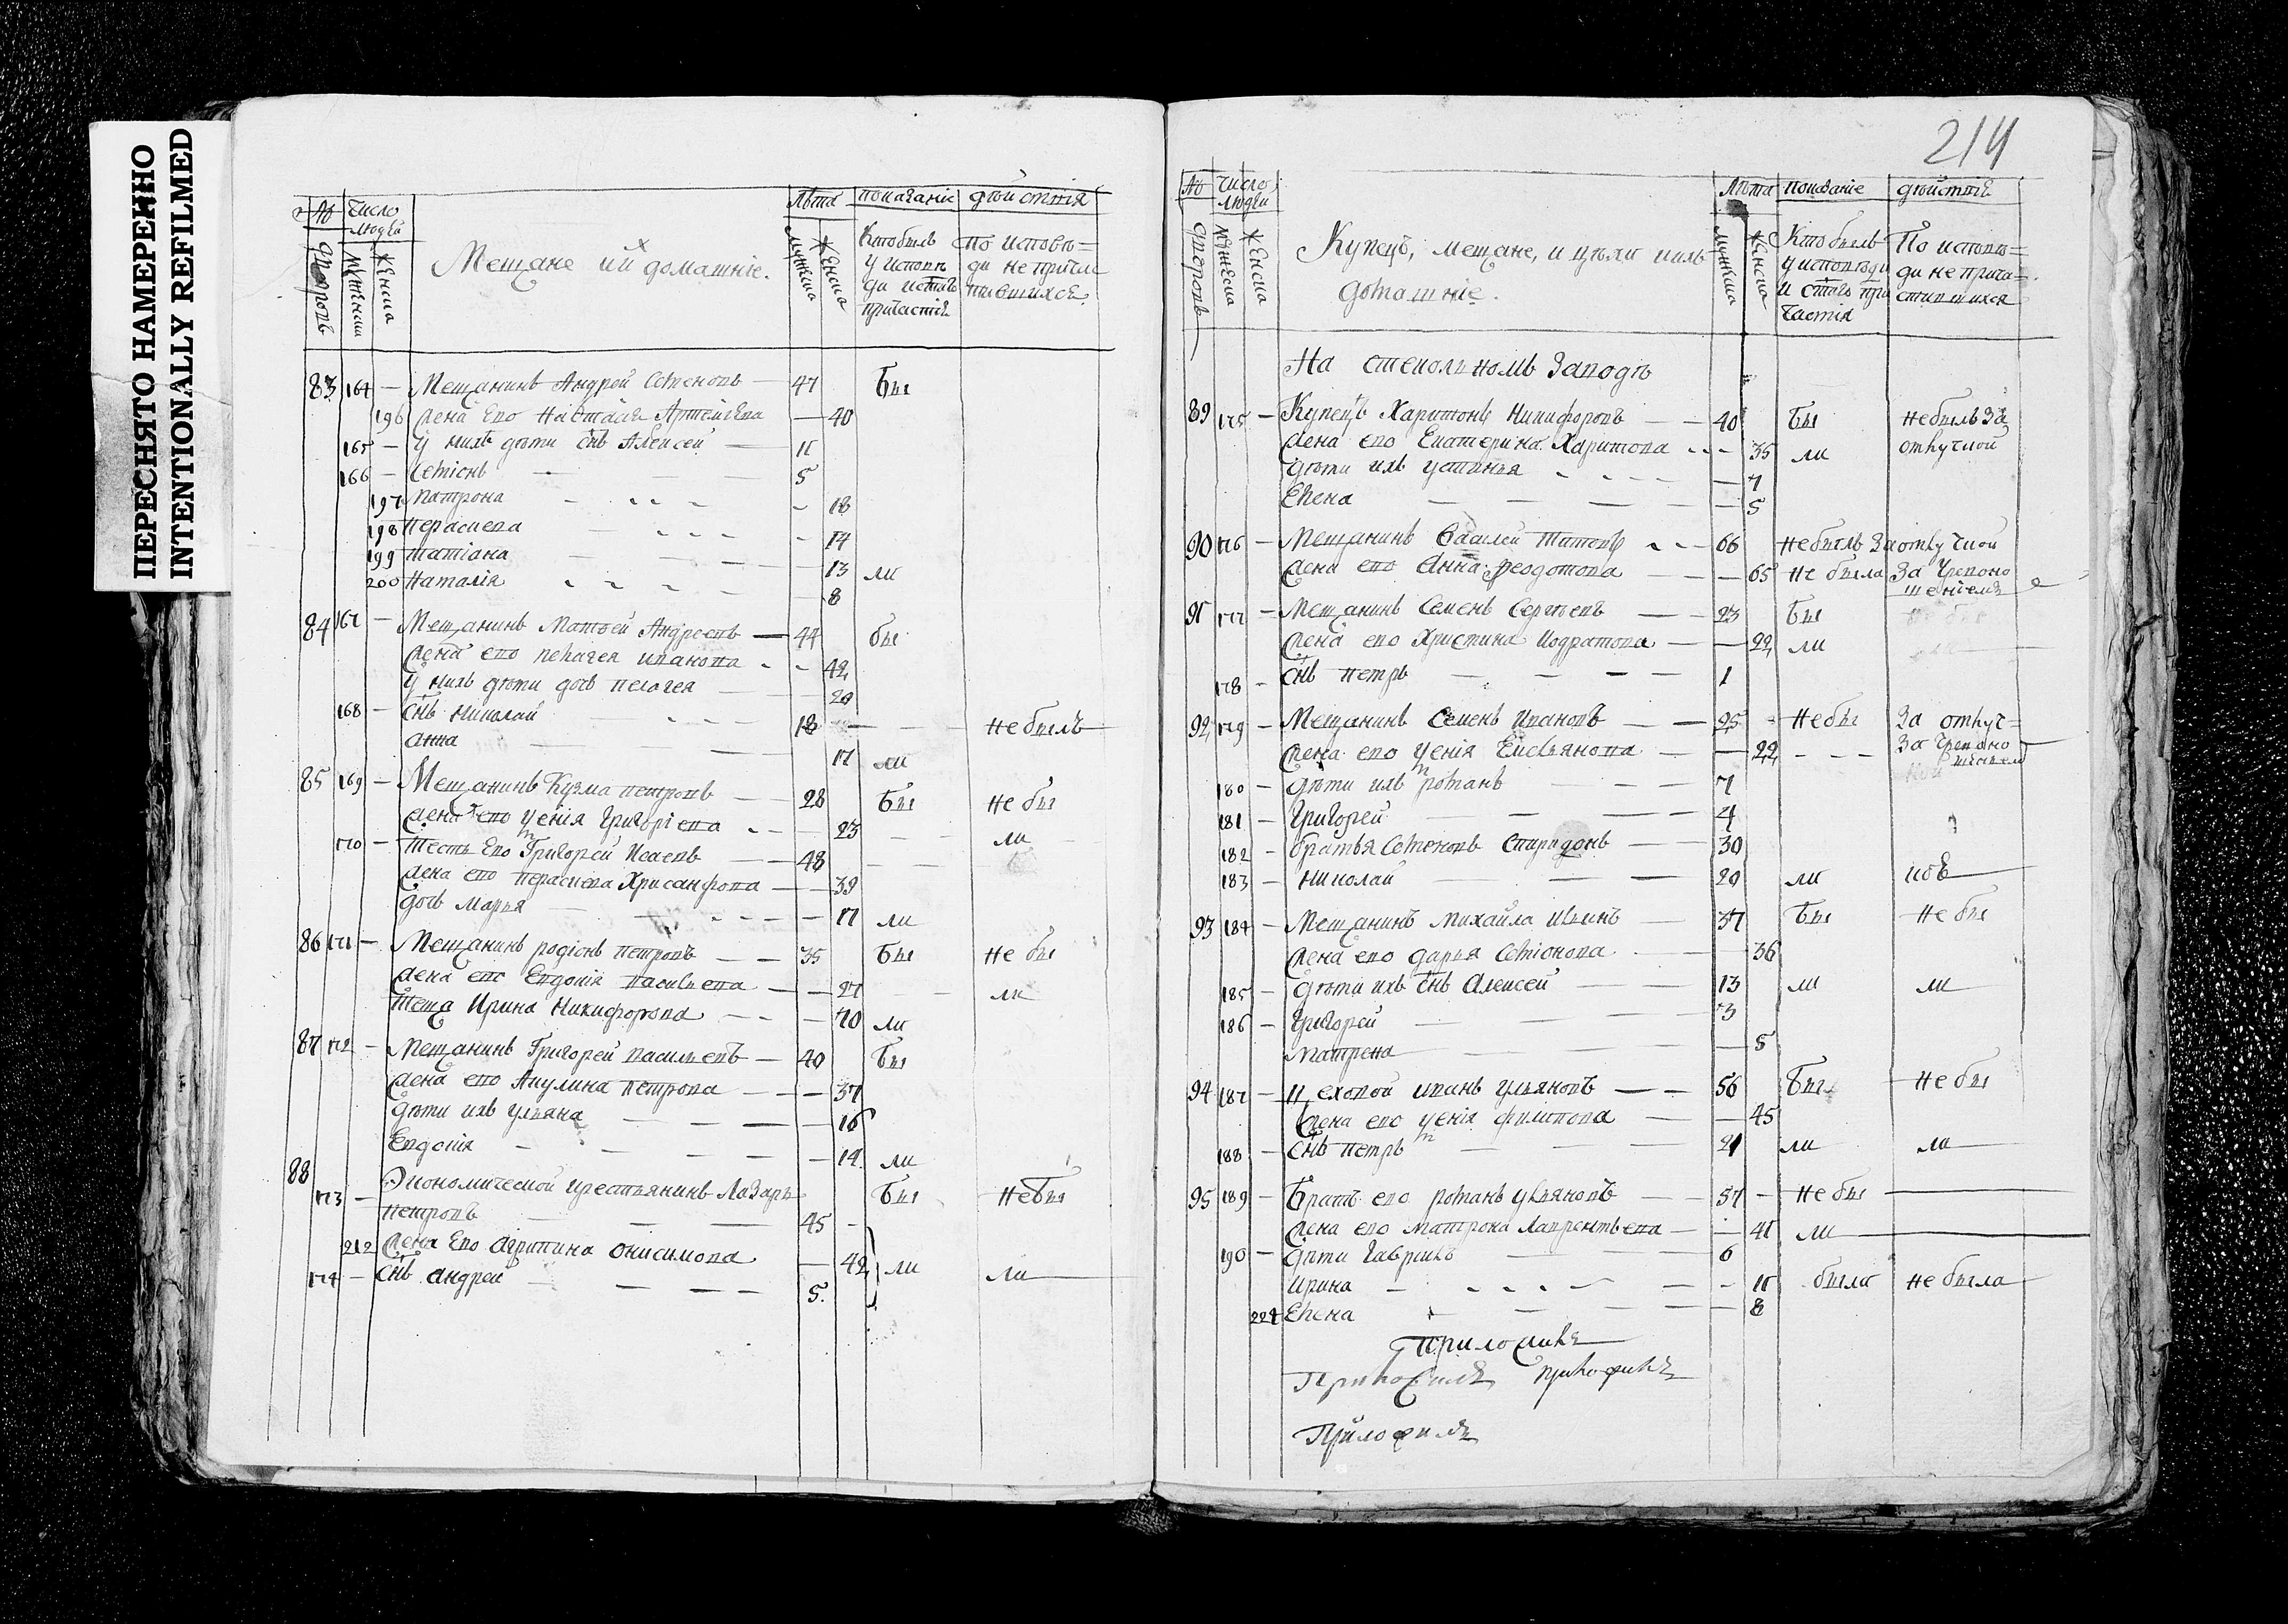 ПЕРЕСНЯТО НАМЕРЕННО
INTENTIONALLY REFILMED
№ Число людей Лѣта показаніе дѣйствія
дворовъ мужеска женска Мещане и их домашніе. мужска женска Кто былъ у исповѣди и свтаго причастія По исповѣди не причастившихся
83 164 — Мещанинъ Андрей Семеновъ — 47 Бы
196 жена его Настасія Артемьева — 40
165 — у нихъ дѣти снъ Алексей — 11
166 — Семіонъ — 5
197 Матрона — 18
198 Пераскева — 14
199 татіана — 13
200 Наталія — 8 ли
84 167 — Мещанинъ Матвей Андреевъ — 44 бы
жена его пелагея иванова — 42
у нихъ дѣти дочь пелагея — 20
168 — снъ Николай — 18 — не былъ
анна — 17 ли
85 169 — Мещанинъ Кузма петровъ — 28 Бы не бы
жена его Ксенія Григоріева — 23 — ли
170 — тесть Его Григорей Исаевъ — 48
жена его пераскева Хрисанфова — 39
дочь Марья — 17 ли
86 171 — Мещанинъ родіонъ петровъ — 35 Бы не бы
жена его Евдокія васильева — 27 — ли
теща Ирина Никифорова — 70 ли
87 172 — Мещанинъ Григорей васильевъ — 40 Бы
жена его Акулина петрова — 37
дѣти ихъ ульяна — 16
Евдокія — 14 ли
88 173 — Экономической крестьянинъ Лазарь Бы не бы
петровъ — 45
212 жена Его агрипина онисимова — 42 ли ли
174 — снъ андрей — 5.
214
№ Число людей Лѣта показаніе дѣйствія
дворовъ мужеска женска Купецъ, мещане, и цѣхи ихъ домашніе. мужска женска Кто былъ у исповѣди и свтаго причастія По исповѣди не причастившихся
На стекольномъ Заводѣ
89 175 — Купецъ Харитонъ Никифоровъ — 40 Бы не былъ за
жена его Екатерина Харитова — 35 ли отлучкой
дѣти ихъ устинья — 7
Елена — 5
90 176 — Мещанинъ Василей Титовъ — 66 не былъ за отлучкой
жена его Анна федотова — 65 не была за
91 177 — Мещанинъ Семенъ Сергѣевъ — 23 Бы
жена его Христина Кодратова — 22 ли
178 — снъ петръ — 1
92 179 — Мещанинъ Семенъ Ивановъ — 25 — не бы за отлуч=
жена его Ксенія Емельянова — 22 — за
180 — дѣти ихъ романъ — 7
181 — Григорей — 4
182 — братья Семеновъ Спиридонъ — 30
183 — Николай — 20 ли
93 184 — Мещанинъ михайла Ильинъ — 37 Бы не бы
жена его дарья Семіонова — 36
185 — дѣти ихъ снъ Алексей — 13 ли ли
186 — Григорей — 3
Матрена — 5
94 187 — Цеховой иванъ ульяновъ — 56 Бы не бы
жена его Ксенія филипова — 45
188 — снъ петръ — 21 ли ли
95 189 — Братъ его романъ ульяновъ — 57 — не бы
жена его матрона лаврентьева — 41 ли
190 — дѣти Гаврилъ — 6
ирина — 11 были не была
224 Елена — 8